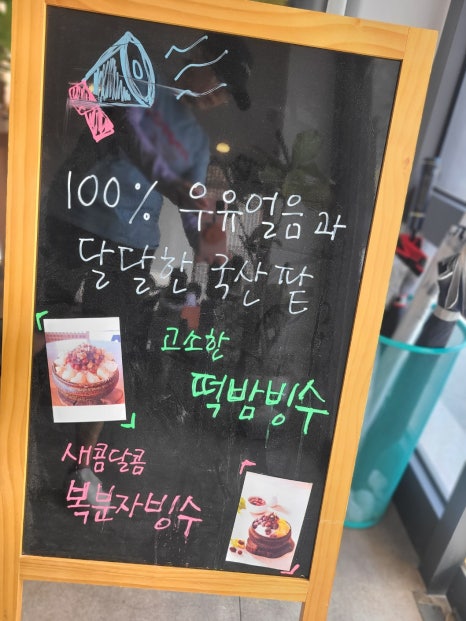 100% 우유얼음과
달달한 국산 팥
고소한
떡밤빙수
새콤달콤
복분자빙수